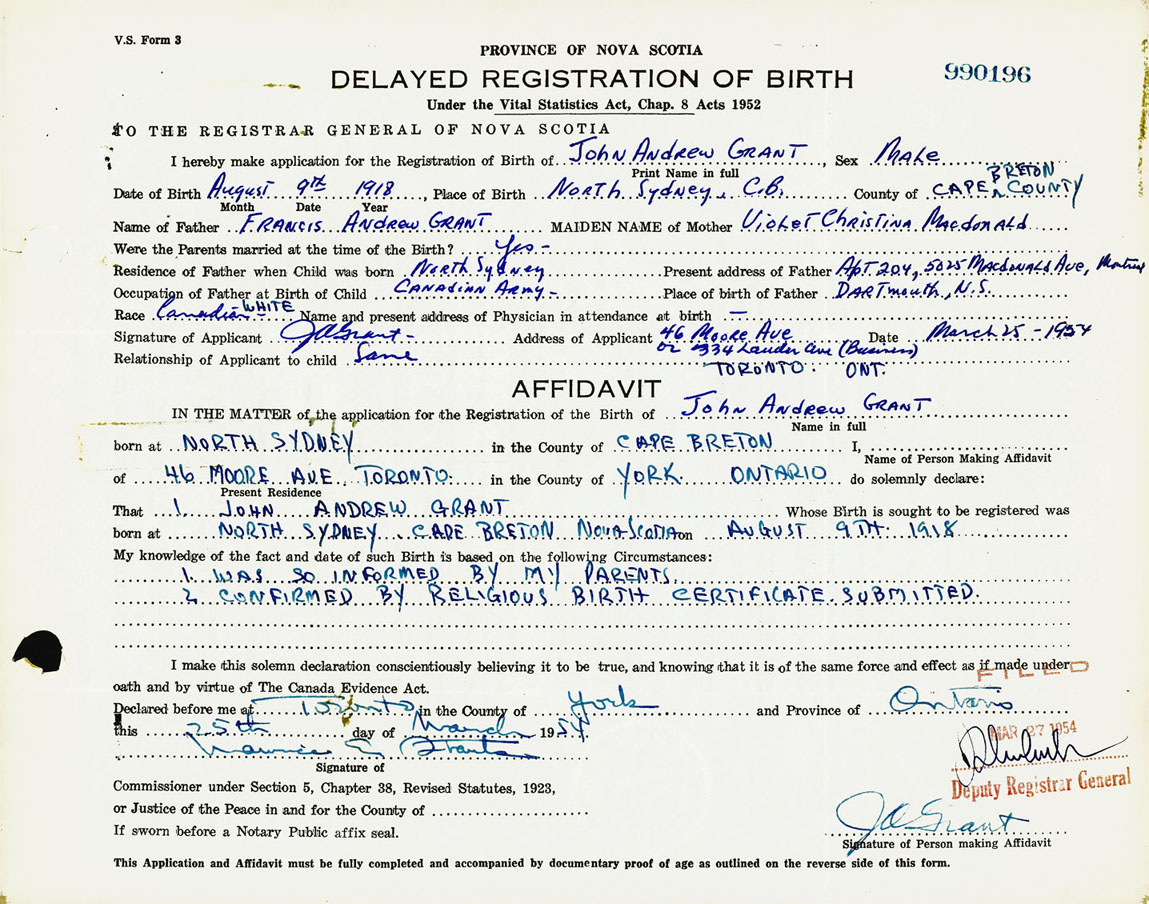 V.S. Form 3
PROVINCE OF NOVA SCOTIA
DELAYED REGISTRATION OF BIRTH
990196
Under the Vital Statistics Act, Chap. 8 Acts 1952
TO THE REGISTRAR GENERAL OF NOVA SCOTIA
I hereby make application for the Registration of Birth of John Andrew Grant, Sex Male
Print Name in full
Date of Birth August 9th 1918, Place of Birth North Sydney, C.B. County of CAPE BRETON COUNTY
Month Date Year
Name of Father Francis Andrew Grant MAIDEN NAME of Mother Violet Christina Macdonald
Were the Parents married at the time of the Birth? Yes-
Residence of Father when Child was born North Sydney Present address of Father Apt 204, 5025 Macdonald Ave, Montreal
Occupation of Father at Birth of Child Canadian Army- Place of birth of Father Dartmouth, N.S.
Race Canadian- WHITE Name and present address of Physician in attendance at birth —
Signature of Applicant JAGrant- Address of Applicant 46 Moore Ave Date March 25-1954
or 334 Lauder Ave (Business)
Relationship of Applicant to child Same TORONTO. ONT.
AFFIDAVIT
IN THE MATTER of the application for the Registration of the Birth of John Andrew Grant
Name in full
born at NORTH SYDNEY in the County of CAPE BRETON I,
Name of Person Making Affidavit
of 46 MOORE AVE, TORONTO. in the County of YORK. ONTARIO do solemnly declare:
Present Residence
That 1. JOHN ANDREW GRANT Whose Birth is sought to be registered was
born at NORTH SYDNEY, CAPE BRETON NOVA SCOTIA on AUGUST 9TH. 1918
My knowledge of the fact and date of such Birth is based on the following Circumstances:
1. WAS SO INFORMED BY MY PARENTS.
2 CONFIRMED BY RELIGIOUS BIRTH CERTIFICATE SUBMITTED.
I make this solemn declaration conscientiously believing it to be true, and knowing that it is of the same force and effect as if made under
FILED
oath and by virtue of The Canada Evidence Act.
Declared before me at Toronto in the County of York and Province of Ontario
this 25th day of March 1954.
MAR 27 1954
Maurice
Signature of
Deputy Registrar General
Commissioner under Section 5, Chapter 38, Revised Statutes, 1923,
or Justice of the Peace in and for the County of
If sworn before a Notary Public affix seal.
JAGrant
Signature of Person making Affidavit
This Application and Affidavit must be fully completed and accompanied by documentary proof of age as outlined on the reverse side of this form.